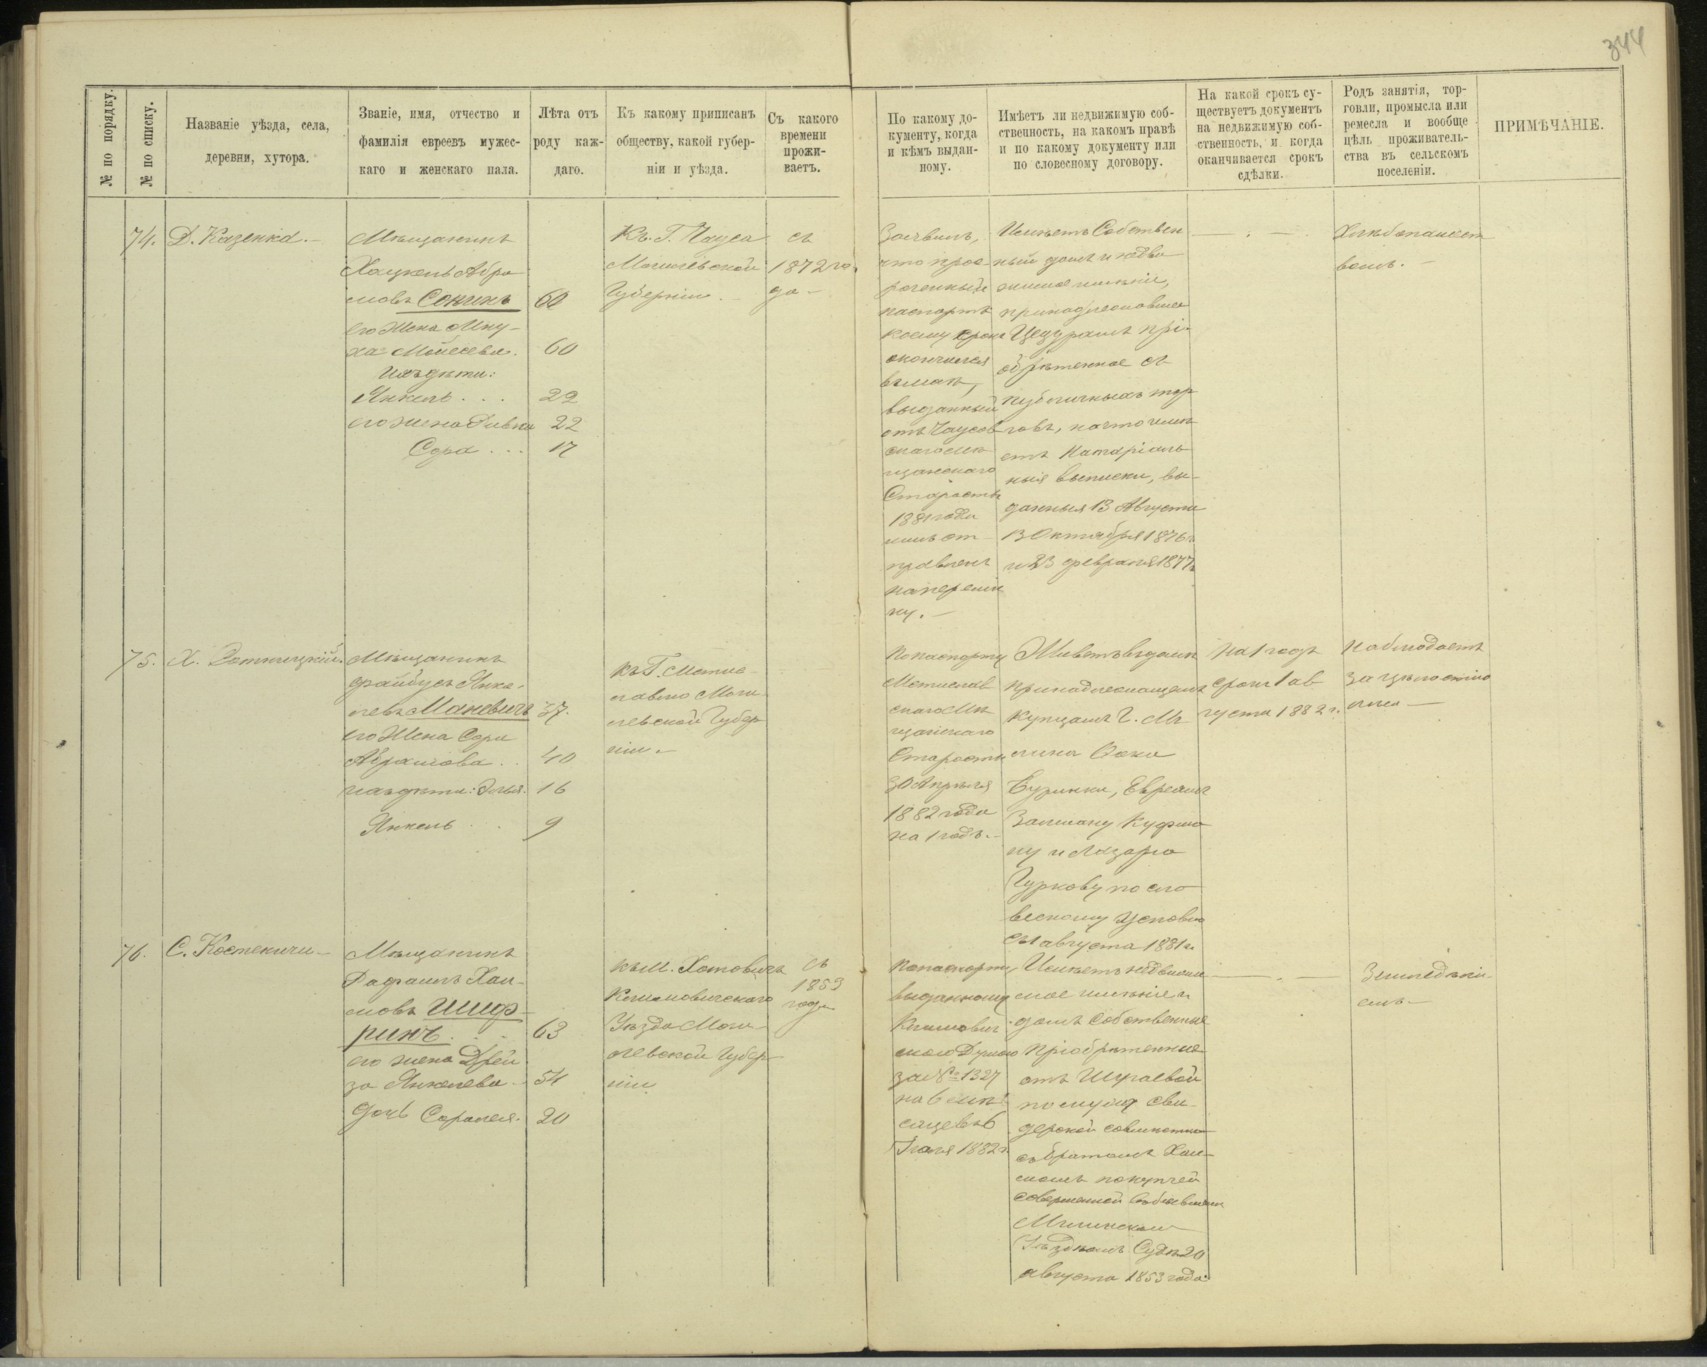 344
№ по порядку.
№ по списку.
Названіе уѣзда, села,
деревни, хутора.
Званіе, имя, отчество и
фамилія евреевъ мужес-
каго и женскаго пала.
Лѣта отъ
роду каж-
даго.
Къ какому приписанъ
обществу, какой губер-
ніи и уѣзда.
Съ какого
времени
прожи-
ваетъ.
По какому до-
кументу, когда
и кѣмъ выдан-
ному.
Имѣетъ ли недвижимую соб-
ственность, на какомъ правѣ
и по какому документу или
по словесному договору.
На какой срокъ су-
ществуетъ документъ
на недвижимую соб-
ственность, и когда
оканчивается срокъ
сдѣлки.
Родъ занятія, тор-
говли, промысла или
ремесла и вообще
цѣль проживатель-
ства въ сельскомъ
поселеніи.
ПРИМѢЧАНІЕ.
74.
Д. Казенка.
Мѣщанинъ
Хацкель Абра
мовъ Сонинъ 60
его Жена Мну-
ха Мойсеева. 60
ихъ дѣти:
Янкель 22
его жена Ривка 22
Сора 17
Къ Г. Чауса
Могилевской
Губерніи.
съ
1872 го
да
Заявилъ,
что прос-
роченный
паспортъ
коему срокъ
окончился
въ маѣ,
выданный
отъ Чаусов
скаго мѣ
щанскаго
Старосты
1881 года
имъ от
правленъ
на перемѣ
ну.
Имѣетъ Собствен
ный домъ и недви
жимое имѣніе,
принадлежавшее
прі-
обрѣтенное съ
публичныхъ тор
говъ, на что имѣ
етъ Нотаріаль
ныя выписки, вы-
данныя 13 Августа
13 Октября 1876 г.
и 23 февраля 1877 г.
Хлѣбопашест
вомъ.
75.
Мѣщанинъ
Файбусъ Янке-
левъ Маневичъ 37.
его Жена Сора
Абрамова 40
ихъ дѣти: Элья 16
Янкель 9
къ Г. Мстис-
лавлю Моги
левской Губер
ніи.
По паспорту
Мстислав
скаго Мѣ
щанскаго
Старосты
30 Апрѣля
1882 года
на 1 годъ.
Живетъ въ домѣ
принадлежащемъ
Купцамъ Г. Мг
лина
Евреямъ
Залману Куфма
ну и Лазарю
Гуркову по сло
весному условію
съ 1 августа 1881 г.
На 1 годъ
срокъ 1 ав
густа 1882 г.
Наблюдаетъ
за цѣлостію
лѣса
76.
С. Костеничи
Мѣщанинъ
Рафаилъ Хаи-
мовъ Шиф-
ринъ 63
его жена Дрей
за Янкелева 54
дочь Сорапея 20
къ М. Хотовичъ
Климовичскаго
Уѣзда Моги-
левской Губер-
ніи
съ
1853
года
По паспорту,
выданному
Климович
ской Думою
за № 1327
на 6 мѣ
сяцевъ 6
Іюля 1882 г.
Имѣетъ недвижи
мое имѣніе и
домъ собственные
Пріобрѣтенные
отъ
по мужу
совмѣстно
съ братомъ Хаи-
момъ по купчей
совершенной въ бывшемъ
Мглинскомъ
Уѣздномъ Судѣ 20
августа 1853 года.
Земледѣлі-
емъ